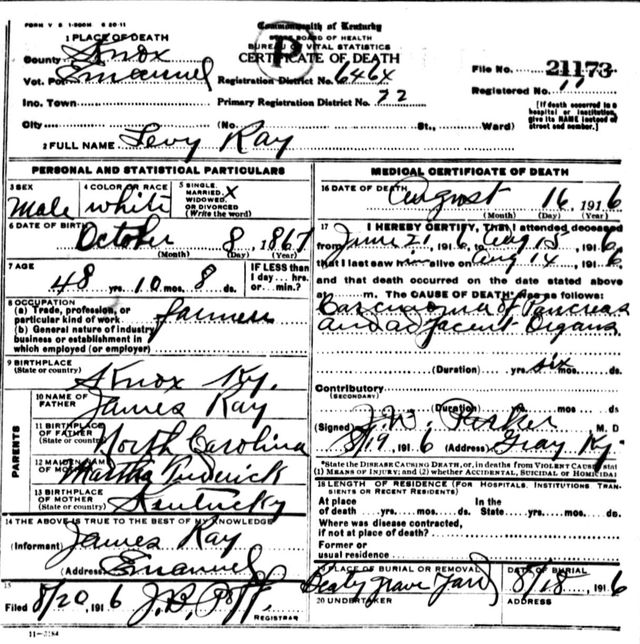 FORM V S 1-200M 6 20 11
Commonwealth of Kentucky
STATE BOARD OF HEALTH
BUREAU OF VITAL STATISTICS
CERTIFICATE OF DEATH
P
1 PLACE OF DEATH
County Knox
Vot. Pct. Emanuel
Inc. Town
City
Registration District No. 6464
Primary Registration District No. 72
File No. 21173
Registered No. 11
[If death occurred in a hospital or institution, give its NAME instead of street and number.]
(No. St., Ward)
2 FULL NAME Levy Ray
PERSONAL AND STATISTICAL PARTICULARS
3 SEX Male
4 COLOR OR RACE white
5 SINGLE, MARRIED, X WIDOWED OR DIVORCED (Write the word)
6 DATE OF BIRTH October 8, 1867
(Month) (Day) (Year)
7 AGE 48 yrs. 10 mos. 8 ds.
IF LESS than 1 day... hrs. or... min.?
8 OCCUPATION
(a) Trade, profession, or particular kind of work farmer
(b) General nature of industry, business or establishment in which employed (or employer)
9 BIRTHPLACE (State or country) Knox Ky.
PARENTS
10 NAME OF FATHER James Ray
11 BIRTHPLACE OF FATHER (State or country) North Carolina
12 MAIDEN NAME OF MOTHER Martha
13 BIRTHPLACE OF MOTHER (State or country) Kentucky
14 THE ABOVE IS TRUE TO THE BEST OF MY KNOWLEDGE
(Informant) James Ray
(Address) Emanuel
15
Filed 8/20, 1916 J.B.
REGISTRAR
11-3184
MEDICAL CERTIFICATE OF DEATH
16 DATE OF DEATH August 16, 1916
(Month) (Day) (Year)
17 I HEREBY CERTIFY, That I attended deceased
from June 21, 1916, to Aug 15, 1916,
that I last saw him alive on Aug 14, 1916,
and that death occurred on the date stated above
at m. The CAUSE OF DEATH* was as follows:
Carcinoma of Pancreas
and adjacent Organs
(Duration) yrs. six mos. ds.
Contributory
(SECONDARY)
(Duration) mos. ds
(Signed) J.W. Parker M. D
8/19, 1916 (Address) Gray Ky.
*State the DISEASE CAUSING DEATH, or, in deaths from VIOLENT CAUSES, stat
(1) MEANS OF INJURY; and (2) whether ACCIDENTAL, SUICIDAL or HOMICIDAL
18 LENGTH OF RESIDENCE (FOR HOSPITALS, INSTITUTIONS, TRANSIENTS OR RECENT RESIDENTS)
At place of death yrs. mos. ds.
In the State yrs. mos. ds.
Where was disease contracted, if not at place of death?
Former or usual residence
19 PLACE OF BURIAL OR REMOVAL
grave Yard
DATE OF BURIAL
8/18, 1916
20 UNDERTAKER
ADDRESS